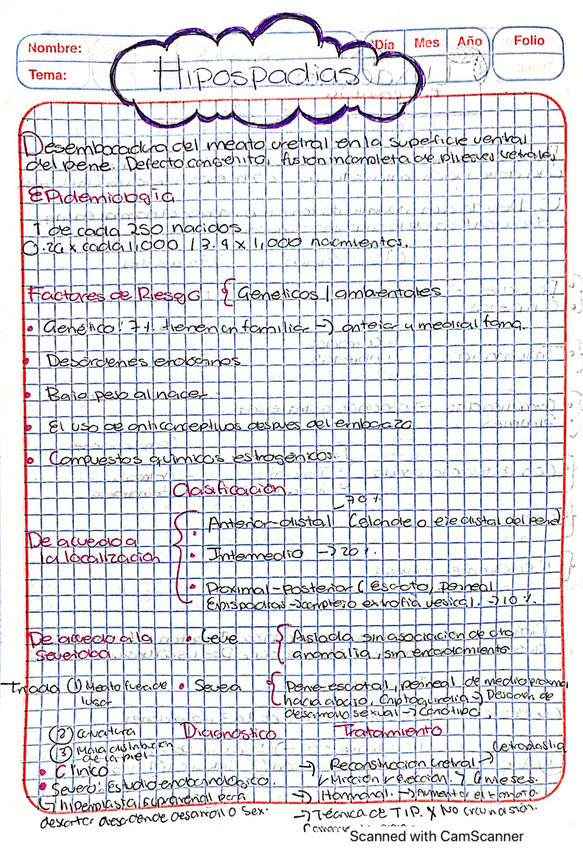 Nombre:
Tema:
Día Mes Año
Folio
Hipospadias
Desembocadura del meato uretral en la superficie ventral
del pene. Defecto congenito, fusion incompleta de pliegues uretrales
Epidemiologia
1 de cada 250 nacidos
0.26 x cada 1,000 / 3.9 x 1,000 nacimientos.
Factores de Riesgo { Geneticos / ambientales
• Genético: 7% tienen un familiar →
• Desordenes endocrinos
• Bajo peso al nacer
• El uso de anticonceptivos despues del embarazo
• Compuestos quimicos estrogénicos.
Clasificación
→70%
De acuerdo a
la localización
• Anterior-distal (Glande o eje distal del pene)
• Intermedio →20%.
• Proximal-Posterior (escroto, perineal
Epispadias→complejo extrofia vesical. →10%.
De acuerdo a la
severidad
• Leve { Aislada sin asociacion de otra
anomalia, sin encordamiento
Triada (1) Meato fuera de
lugar
• Severa { Pene-escrotal, perineal de medio proximal
hacia abajo, Criptorquidia → Desorden de
desarrollo sexual → Cariotipo,
(2) Curvatura
(3) Mala distribucion
de la piel
Diagnostico
• Clinico
• Severo: Estudio endocrinologico.
↳ hiperplasia suprarenal para
descartar desorden de desarrollo Sex.
Tratamiento
→ Reconstrucción uretral → Uretroplastia
Miccion y ereccion. 4 meses.
→ Hormonal. → Aumentar el tamaño.
→ Técnica de T.I.P. y No circuncision.
Scanned with CamScanner